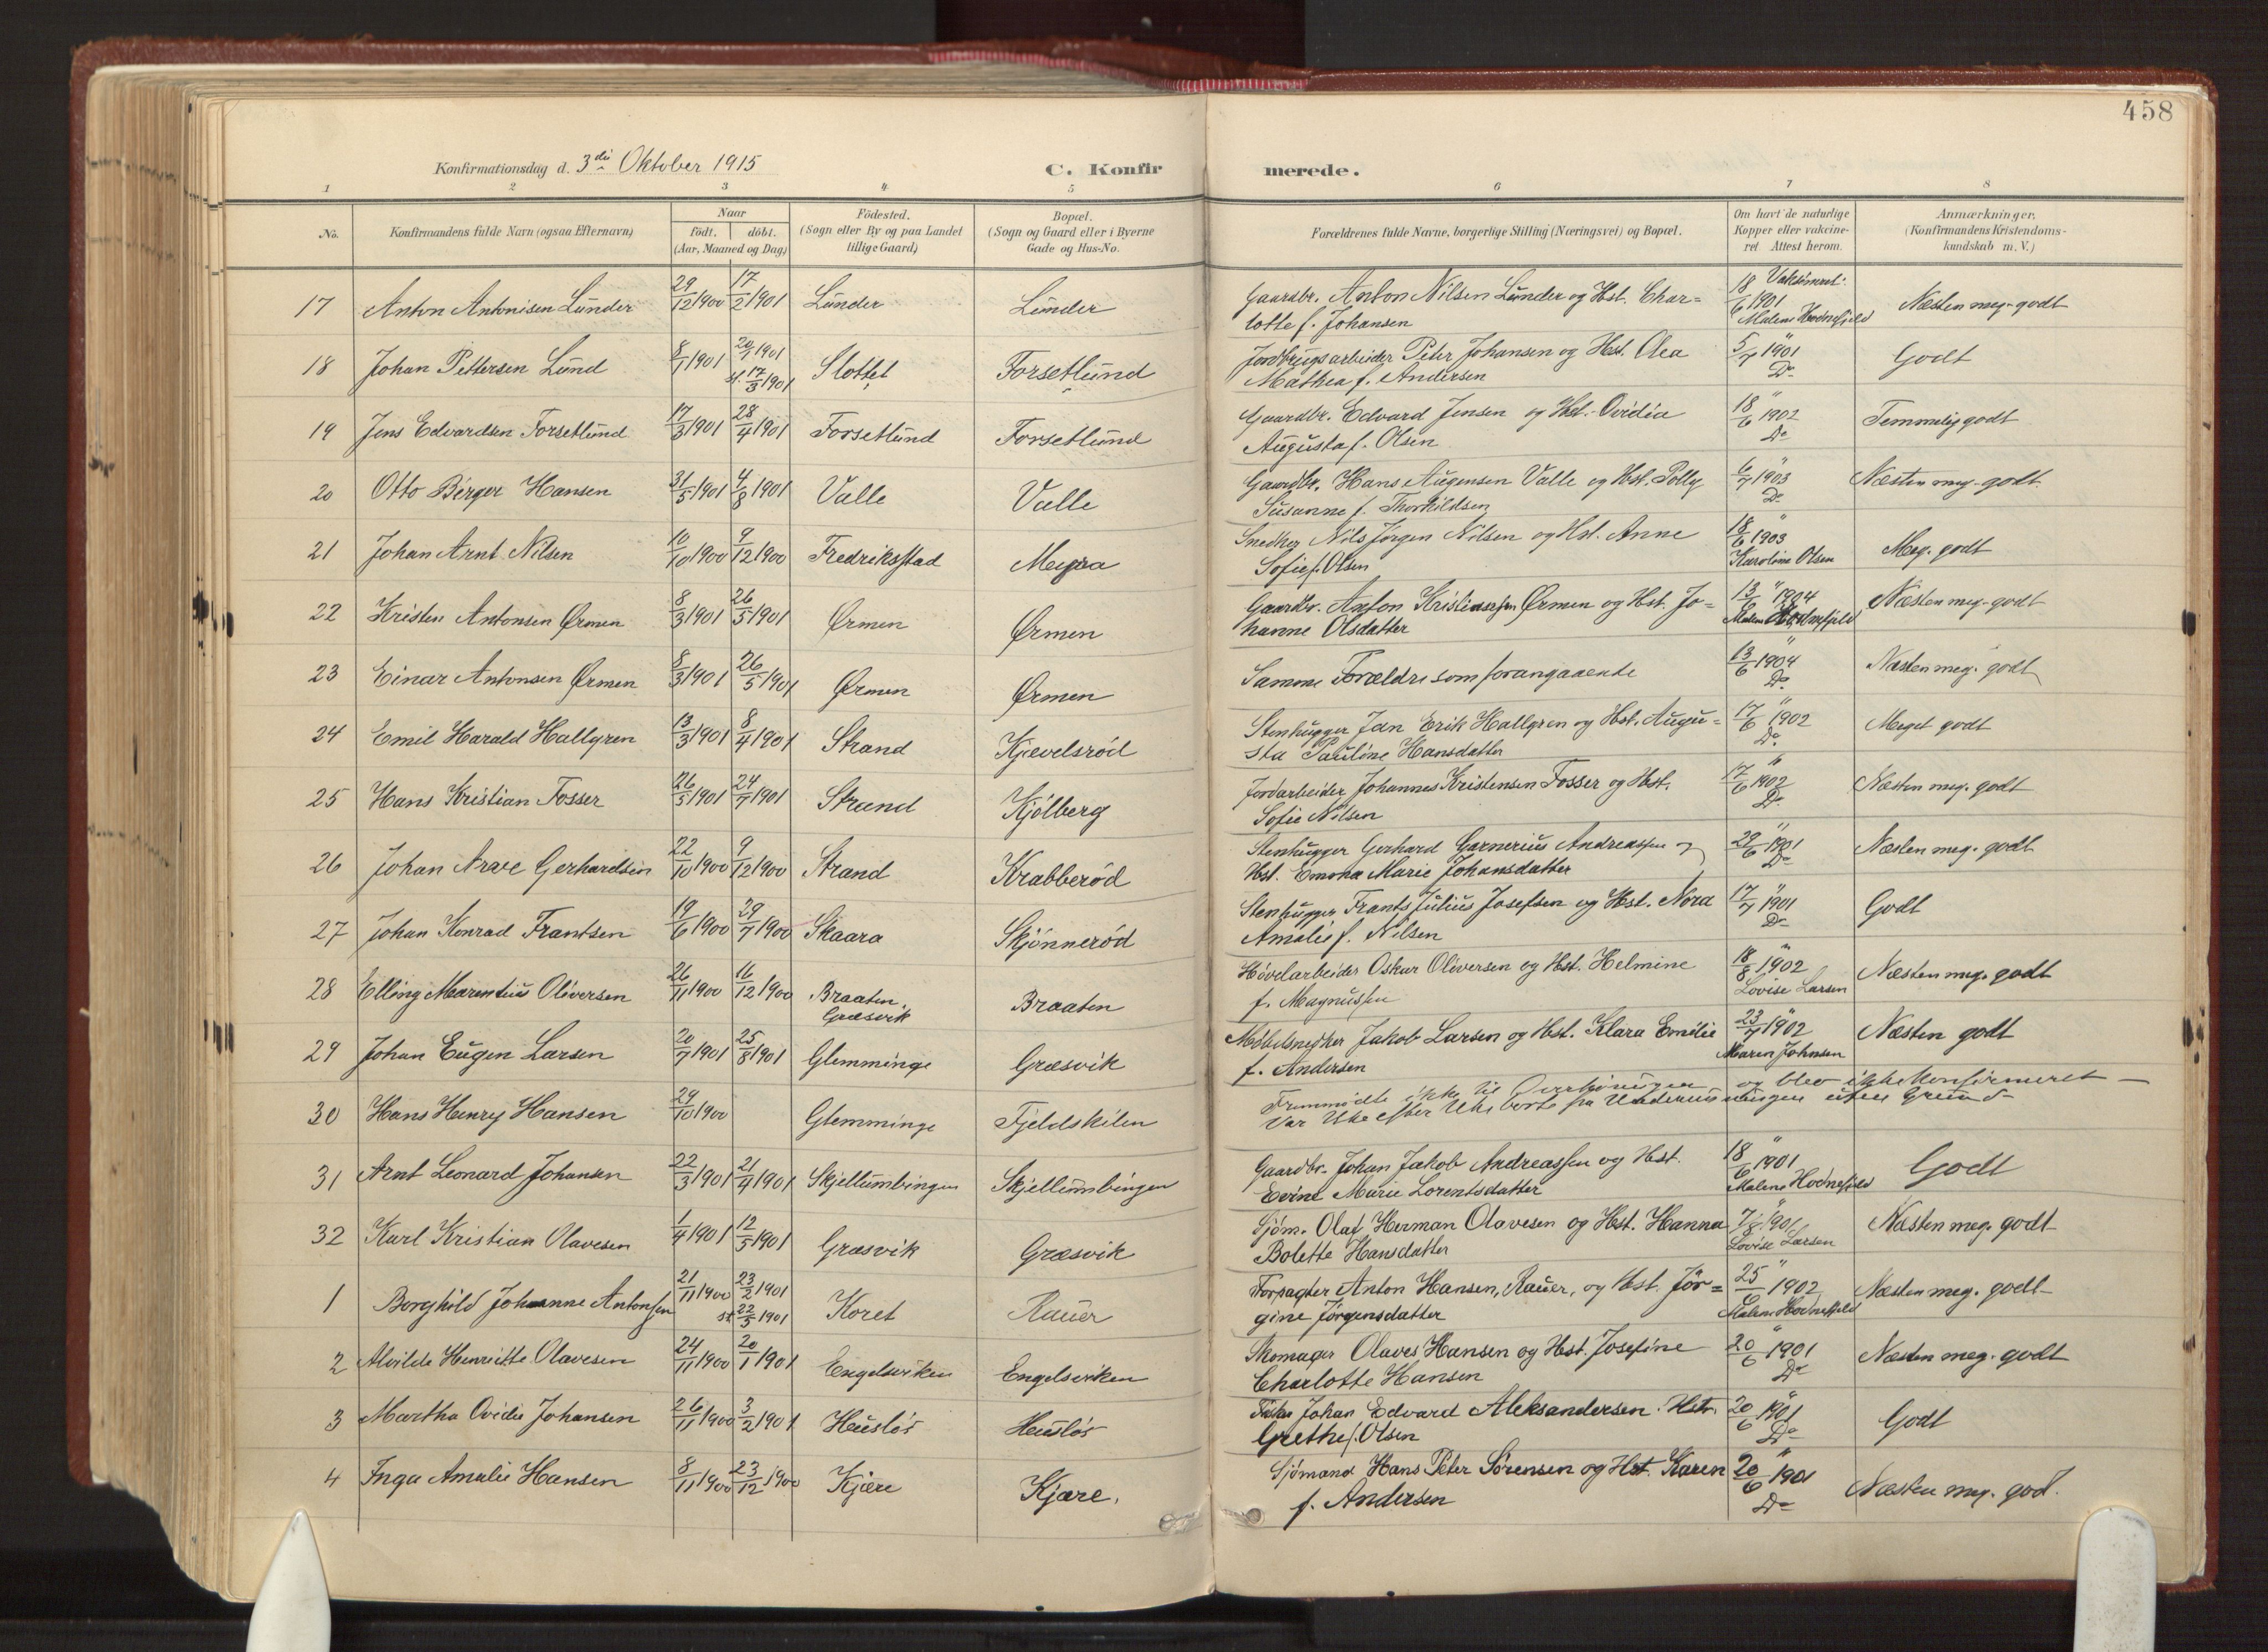 458
Konfirmationsdag d. 3die Oktober 1915 C. Konfirmerede.
1 2 3 4 5 6 7 8
No. Konfirmandens fulde Navn (ogsaa Efternavn) Naar födt. döbt. (Aar, Maaned og Dag) Födested. (Sogn eller By og paa Landet tillige Gaard) Bopæl. (Sogn og Gaard eller i Byerne Gade og Hus-No. Forældrenes fulde Navne, borgerlige Stilling (Næringsvei) og Bopæl. Om havt de naturlige Kopper eller vakcineret. Attest herom. Anmærkninger. (Konfirmandens Kristendomskundskab m. V.)
17 Anton Antonisen Lunder 29/12 1900 17/2 1901 Lunder Lunder Gaardbr. Anton Nilsen Lunder og Hst. Char= 18/6 1901 Næsten meg. godt
lotte f. Johansen Malene Hodnefjeld
18 Johan Pettersen Lund 8/1 1901 20/1 1901 Slottet Forsetlund Jordbrugsarbeider Peter Johansen og Hst. Olea 5/7 1901 Godt
st. 17/3 1901 Mathea f. Andersen Do
19 Jens Edvardsen Forsetlund 17/3 1901 28/4 1901 Forsetlund Forsetlund Gaardbr. Edvard Jensen og Hst. Ovidia 18/6 1902 Temmelig godt
Augusta f. Olsen Do
20 Otto Birger Hansen 31/5 1901 4/8 1901 Valle Valle Gaardbr. Hans Augensen Valle og Hst. Polly 6/7 1903 Næsten meg. godt.
Susanne f. Thorkildsen Do
21 Johan Arnt Nilsen 10/10 1900 9/12 1900 Fredriksstad Snedker Nils Jørgen Nilsen og Hst. Anne 18/6 1903 Meg. godt
Sofie f. Olsen Karoline Olsen
22 Kristen Antonsen Ørmen 8/3 1901 26/5 1901 Ørmen Ørmen Gaardbr. Anton Kristiansen Ørmen og Hst. Jo= 13/6 1904 Næsten meg. godt
hanne Olsdatter Malene Hodnefjeld
23 Einar Antonsen Ørmen 8/3 1901 26/5 1901 Ørmen Ørmen Samme Forældre som forangaaende 13/6 1904 Næsten meg. godt
Do.
24 Emil Harald Hallgren 13/3 1901 8/4 1901 Strand Kjævelsrød Stenhugger Jan Erik Hallgren og Hst. Augu= 17/6 1902 Meget godt
sta Pauline Hansdatter Do.
25 Hans Kristian Fosser 26/5 1901 24/7 1901 Strand Kjølberg Jordarbeider Johannes Kristensen Fosser og Hst. 17/6 1902 Næsten meg. godt
Sofie Nilsen Do
26 Johan Arve Gerhardsen 22/10 1900 9/12 1900 Strand Krabberød Stenhugger Gerhard Garnerius Andreassen og 1901 Næsten meg. godt
Hst. Emma Marie Johansdatter Do
27 Johan Konrad Frantsen 19/6 1900 29/7 1900 Skaara Skjønnerød Stenhugger Frants Julius Josefsen og Hst. Nora 17/7 1901 Godt
Amalie f. Nilsen Do
28 Elling Marentius Oliversen 26/11 1900 16/12 1900 Braaten, Græsvik Braaten Høvelarbeider Oskar Oliversen og Hst. Helmine 18/8 1902 Næsten meg. godt
f. Magnussen Lovise Larsen
29 Johan Eugen Larsen 20/7 1901 25/8 1901 Glemminge Græsvik Møbelsnedker Jakob Larsen og Hst. Klara Emilie 23/7 1902 Næsten godt
f. Andersen Maren Johnsen
30 Hans Henry Hansen 29/10 1900 Glemminge Fjeldskilen Fremmødte ikke til Overhøringen og blev ikke konfirmeret —
Var Uke efter Uke borte fra Undervisningen uten Grund —
31 Arnt Leonard Johansen 22/3 1901 21/4 1901 Skjellumbingen Skjellumbingen Gaardbr. Johan Jakob Andreassen og Hst. 18/6 1901 Godt
Evine Marie Lorentsdatter Malene Hodnefjeld
32 Karl Kristian Olavesen 1/4 1901 12/5 1901 Græsvik Græsvik Sjøm. Olaf Herman Olavesen og Hst. Hanna 1901 Næsten meg. godt
Bolette Hansdatter Lovise Larsen
1 Borghild Johanne Antonsen 21/11 1900 23/2 1901 Koret Rauer Forpagter Anton Hansen, Rauer, og Hst. Jør= 25/6 1902 Næsten meg. godt
st 22/5 1901 gine Jørgensdatter Malene Hodnefjeld
2 Alvilde Henriette Olavesen 24/11 1900 20/1 1901 Engelsviken Engelsviken Skomager Olaves Hansen og Hst. Josefine 20/6 1901 Næsten meg. godt
Charlotte Hansen Do
3 Martha Ovidie Johansen 26/11 1900 3/2 1901 Husløs Husløs Fisker Johan Edvard Aleksandersen. Hst. 20/6 1901 Godt
Grethe f. Olsen Do
4 Inga Amalie Hansen 8/11 1900 23/12 1900 Kjære Kjære. Sjömand Hans Peter Sørensen og Hst. Karen 20/6 1901 Næsten meg. god.
f. Andersen Do